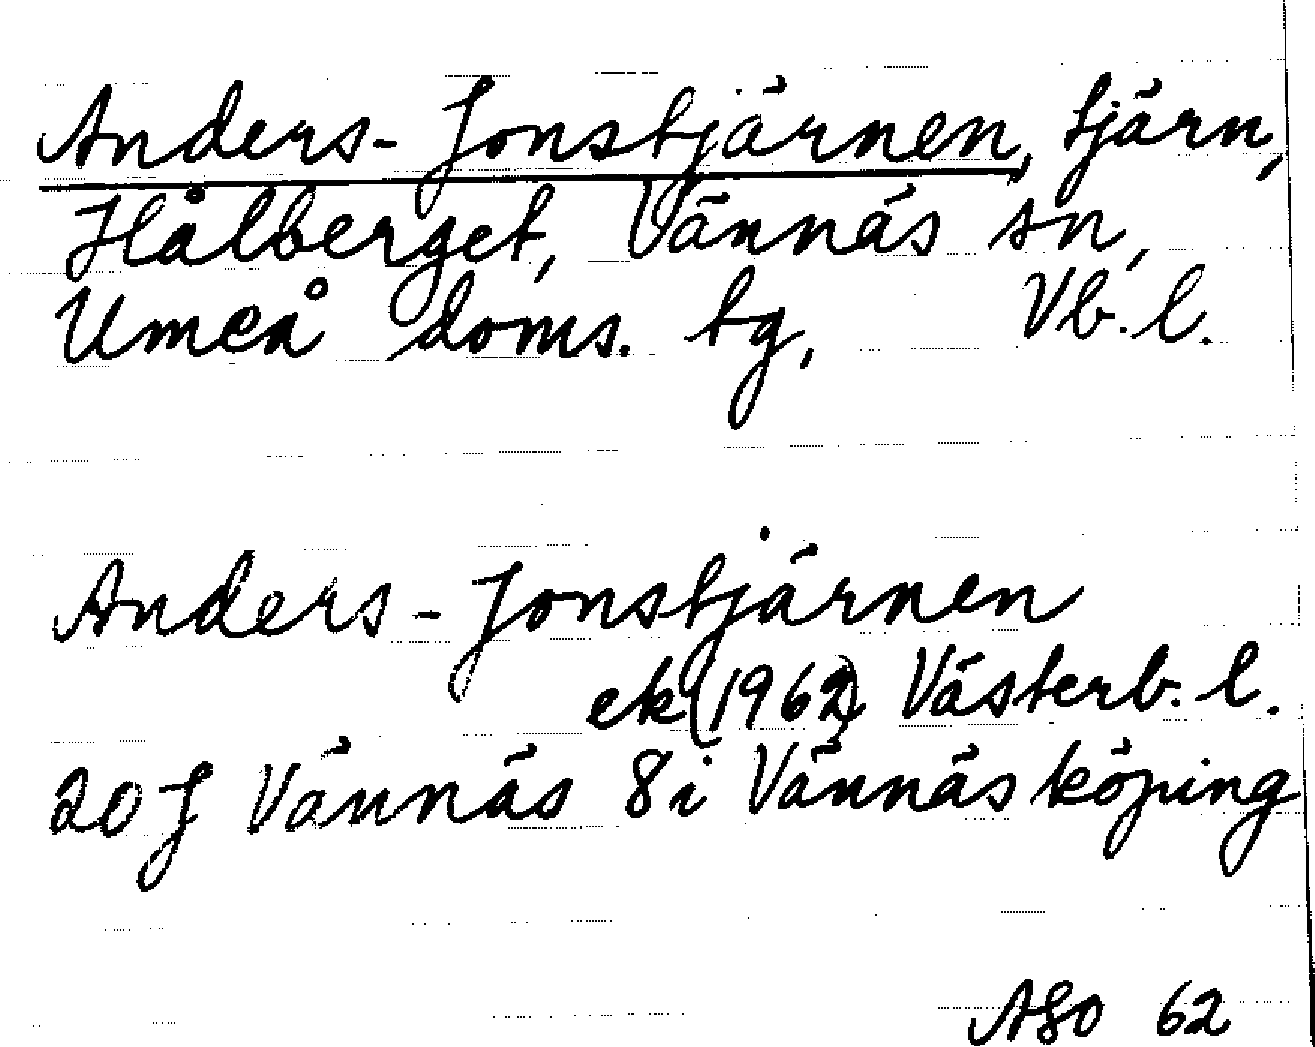 Anders-Jonstjärnen, tjärn,
Hålberget, Vännäs sn,
Umeå doms. tg, Vb. l.
Anders-Jonstjärnen
ek (1962) Västerb. l.
20 J Vännäs 8 i Vännäsköping
ASO 62